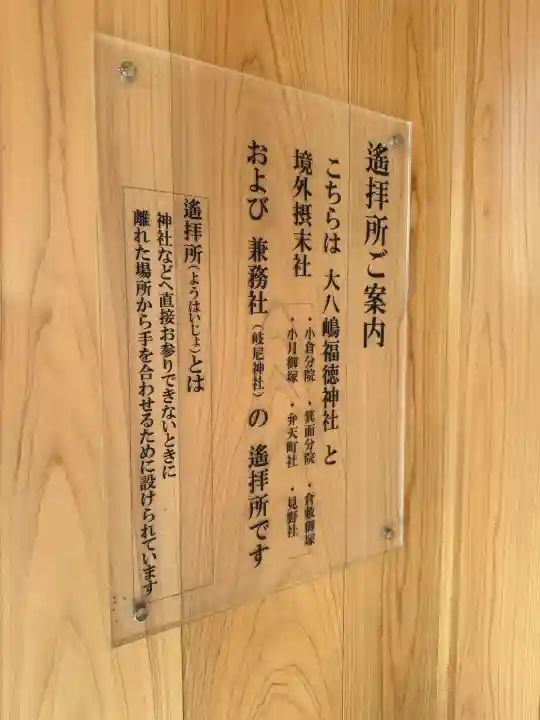 遙拝所ご案内
こちらは 大八嶋福徳神社 と
境外摂末社
・小倉分院 ・箕面分院 ・倉敷御塚
・小月御塚 ・弁天町社 ・見野社
および 兼務社(岐尼神社)の 遙拝所です
遙拝所(ようはいじょ)とは
神社などへ直接お参りできないときに
離れた場所から手を合わせるために設けられています